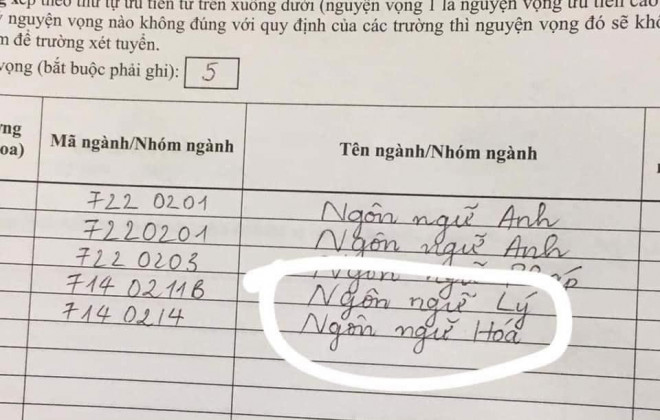 xếp theo thứ tự ưu tiên từ trên xuống dưới (nguyện vọng 1 là nguyện vọng ưu tiên cao
nguyện vọng nào không đúng với quy định của các trường thì nguyện vọng đó sẽ khô
để trường xét tuyển.
vọng (bắt buộc phải ghi): 5
Mã ngành/Nhóm ngành Tên ngành/Nhóm ngành
722 0201 Ngôn ngữ Anh
7220201 Ngôn ngữ Anh
722 0203 Ngôn ngữ Pháp
714 0211B Ngôn ngữ Lý
714 0214 Ngôn ngữ Hóa